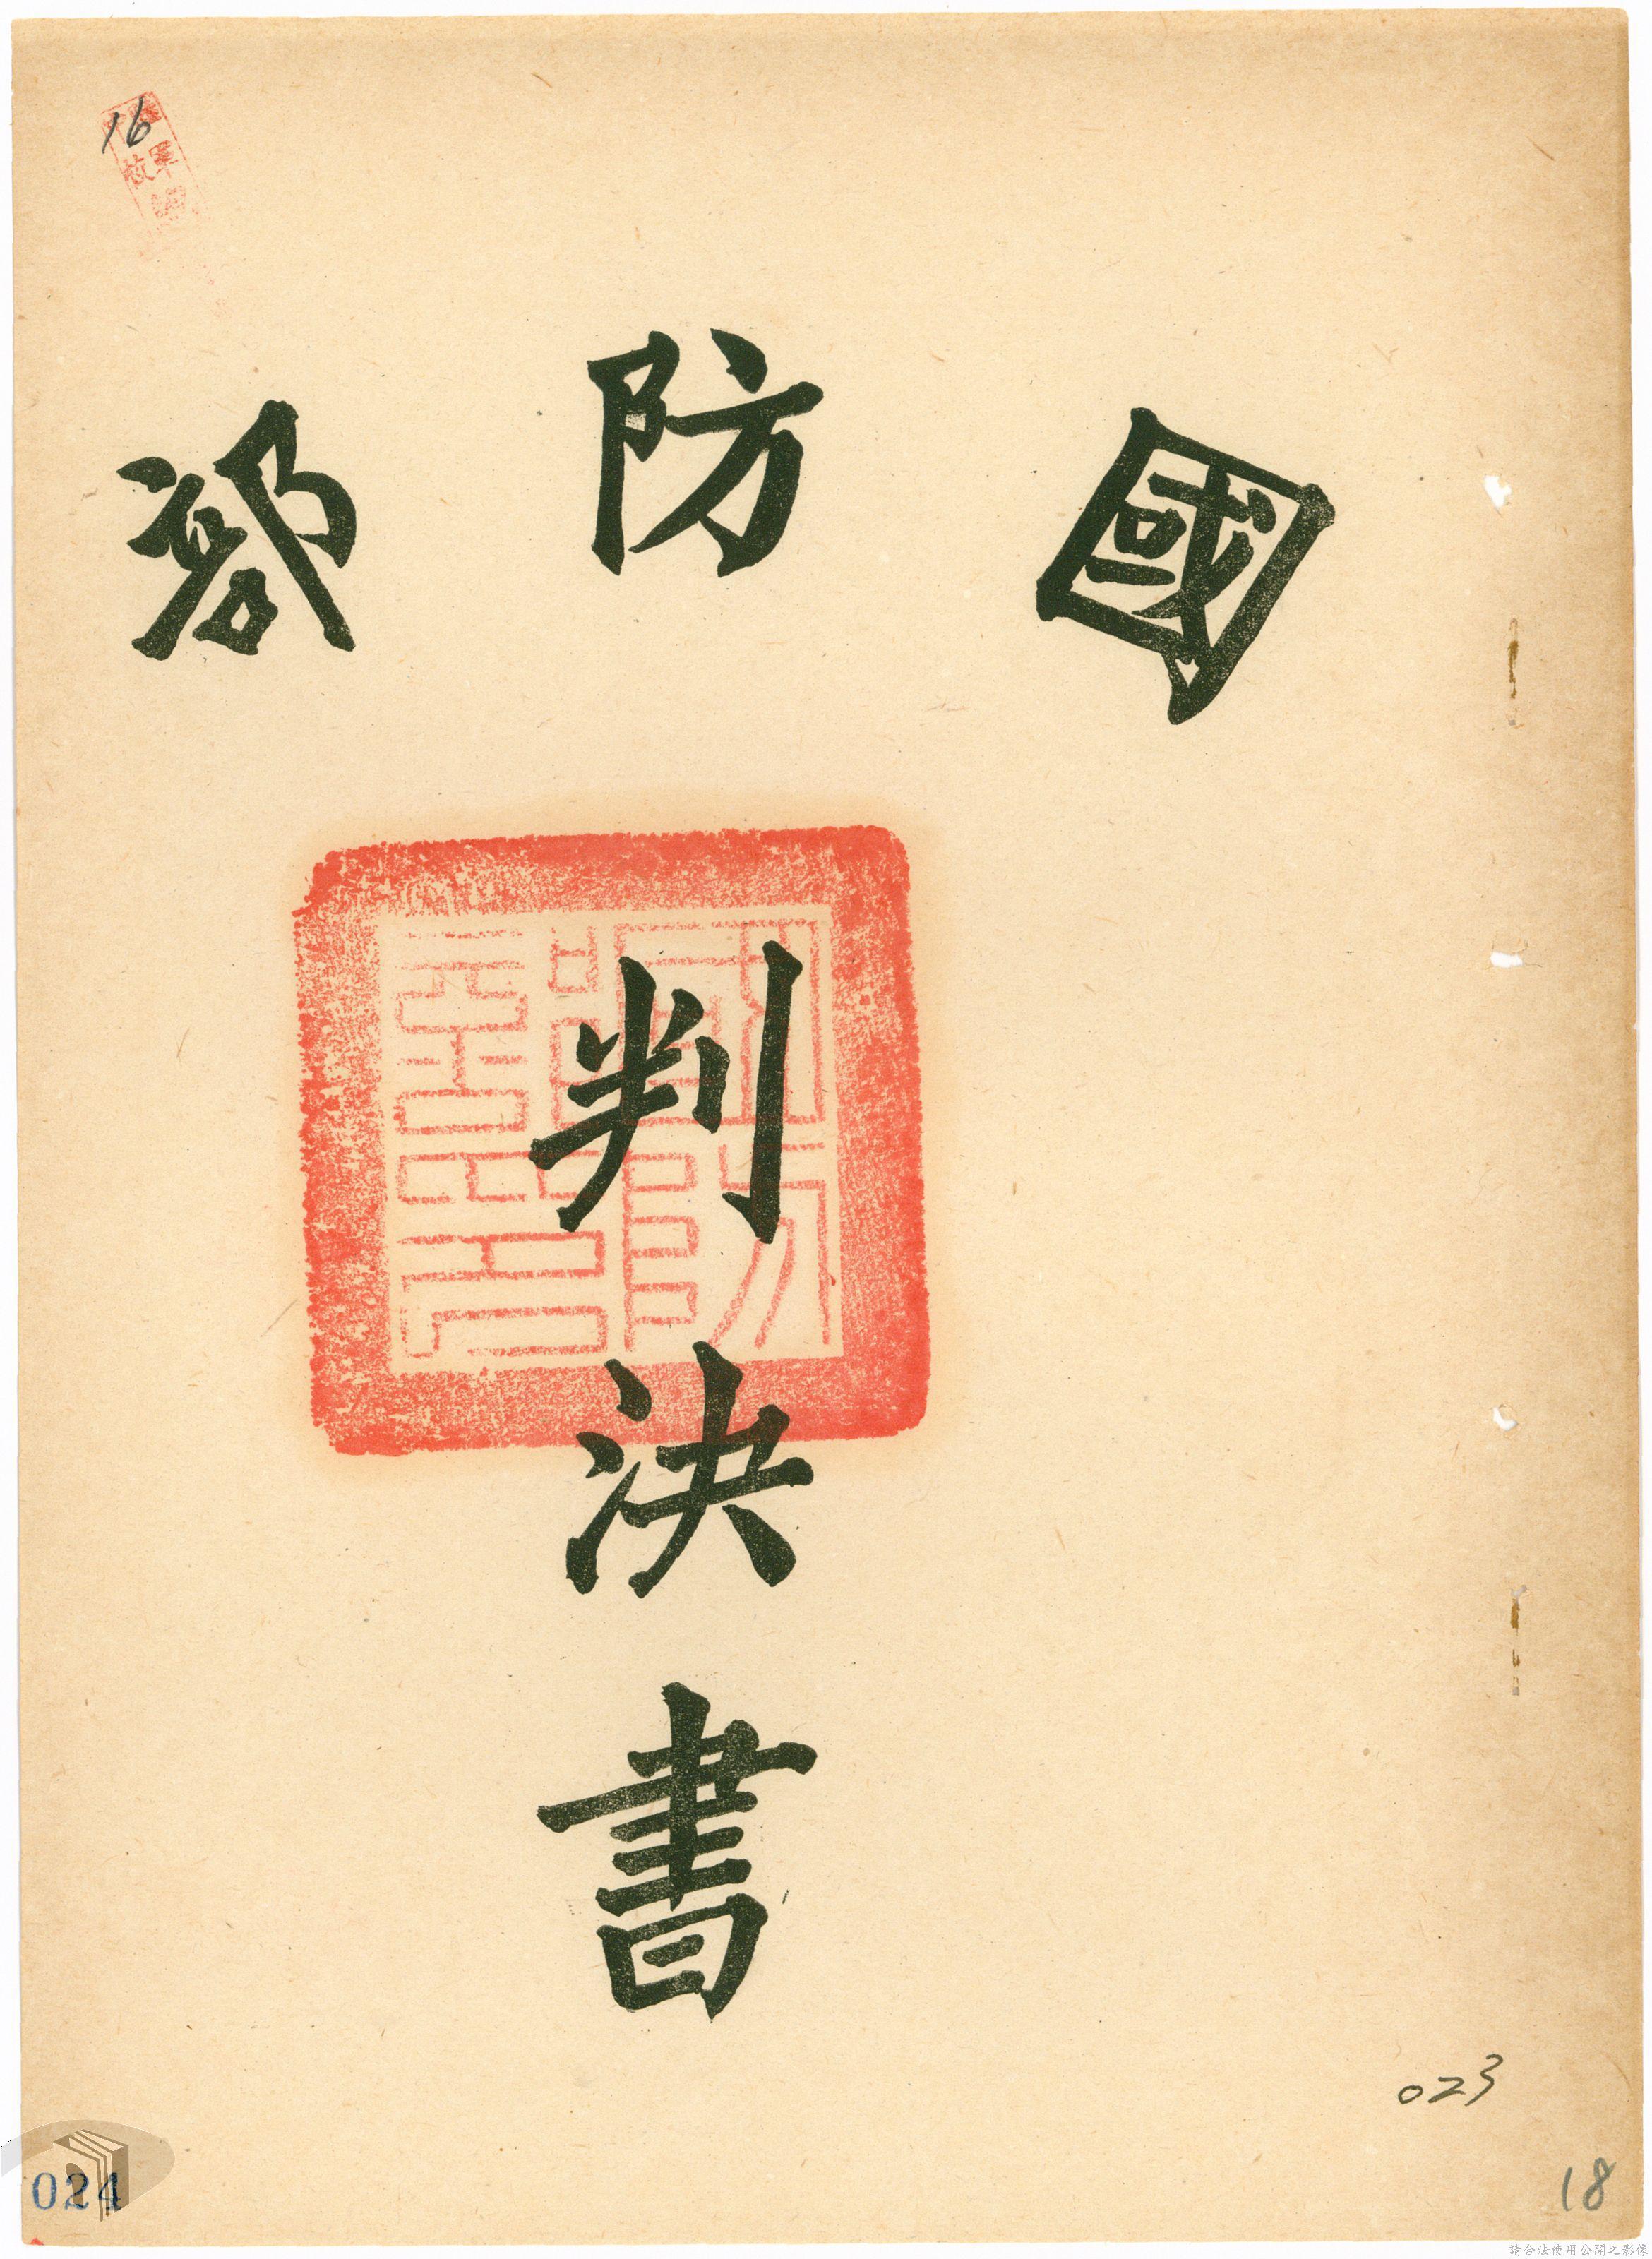 16
國防部
判決書
023
024
18
請合法使用公開之影像